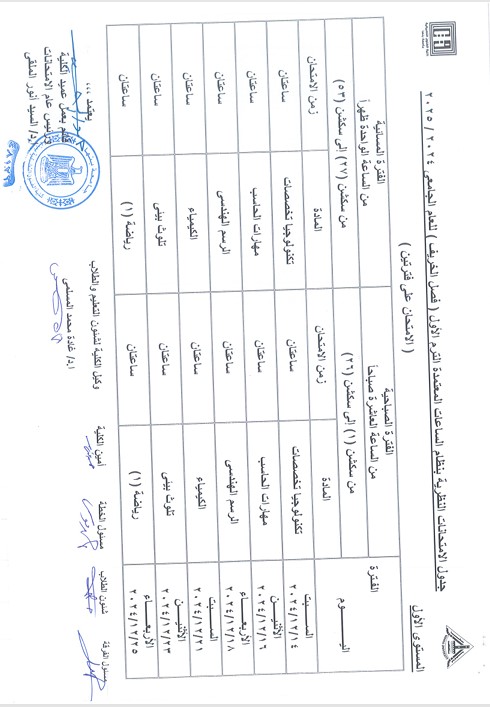 المستوى الأول
جدول الامتحانات النظرية بنظام الساعات المعتمدة الترم الأول ( فصل الخريف ) للعام الجامعى ٢٠٢٤ / ٢٠٢٥
( الامتحان على فترتين )
الفترة
الفترة الصباحية
من الساعة العاشرة صباحاً
من سكشن (١) إلى سكشن (٢٦)
الفترة المسائية
من الساعة الواحدة ظهراً
من سكشن (٢٧) إلى سكشن (٥٣)
اليــوم المادة زمن الامتحان المادة زمن الامتحان
السبت ٢٠٢٤/١٢/١٤ تكنولوجيا تخصصات ساعتان تكنولوجيا تخصصات ساعتان
الأثنين ٢٠٢٤/١٢/١٦ مهارات الحاسب ساعتان مهارات الحاسب ساعتان
الأربعاء ٢٠٢٤/١٢/١٨ الرسم الهندسى ساعتان الرسم الهندسى ساعتان
السبت ٢٠٢٤/١٢/٢١ الكيمياء ساعتان الكيمياء ساعتان
الأثنين ٢٠٢٤/١٢/٢٣ تلوث بيئى ساعتان تلوث بيئى ساعتان
الأربعاء ٢٠٢٤/١٢/٢٥ رياضة (١) ساعتان رياضة (١) ساعتان
مسئول الفرقة
شئون الطلاب
مسئول الخطة
أمين الكلية
وكيل الكلية لشئون التعليم والطلاب
ا.د/ غادة محمد السلمى
يعتمد ...
قائم بعمل عميد الكلية
ورئيس عام الامتحانات
ا.د/ السيد أنور الملقى